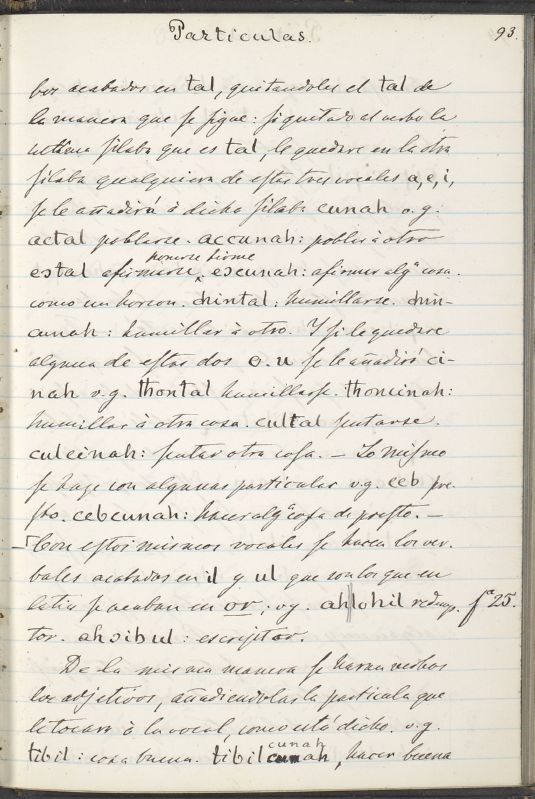 Particulas.
93.
bos acabados en tal, quitandoles el tal de
la manera que se sigue: si quitado al verbo la
ultima silaba que es tal, le quedare en la otra
silaba qualquiera de estas tres vocales a, e, i,
se le añadirá à dicha silaba cunah v.g.
actal poblarse. accunah: poblar à otro
ponerse firme
estal afirmarse, escunah: afirmar algª cosa.
como un horcon. chintal: humillarse. chin-
cunah: humillar à otro. Y si le quedare
alguna de estas dos o. u se le añadirá ci-
nah v.g. thontal humillarse. thoncinah:
humillar à otra cosa. cultal sentarse.
culcinah: sentar otra cosa. — Lo mismo
se haze con algunas particulas v.g. ceb pre-
sto. cebcunah: hacer algª cosa de presto. —
Con estas mismas vocales se hacen los ver-
bales acabados en il y ul que son los que en
latin se acaban en or, vg. ahlohil redemp- fª 25.
tor. ahɔibul: escriptor.
De la misma manera se haran verbos
los adjetivos, añadiendolas la particula que
le tocara à la vocal, como està dicho. v.g.
cunah
tibil: cosa buena. tibilcunah, hacer buena